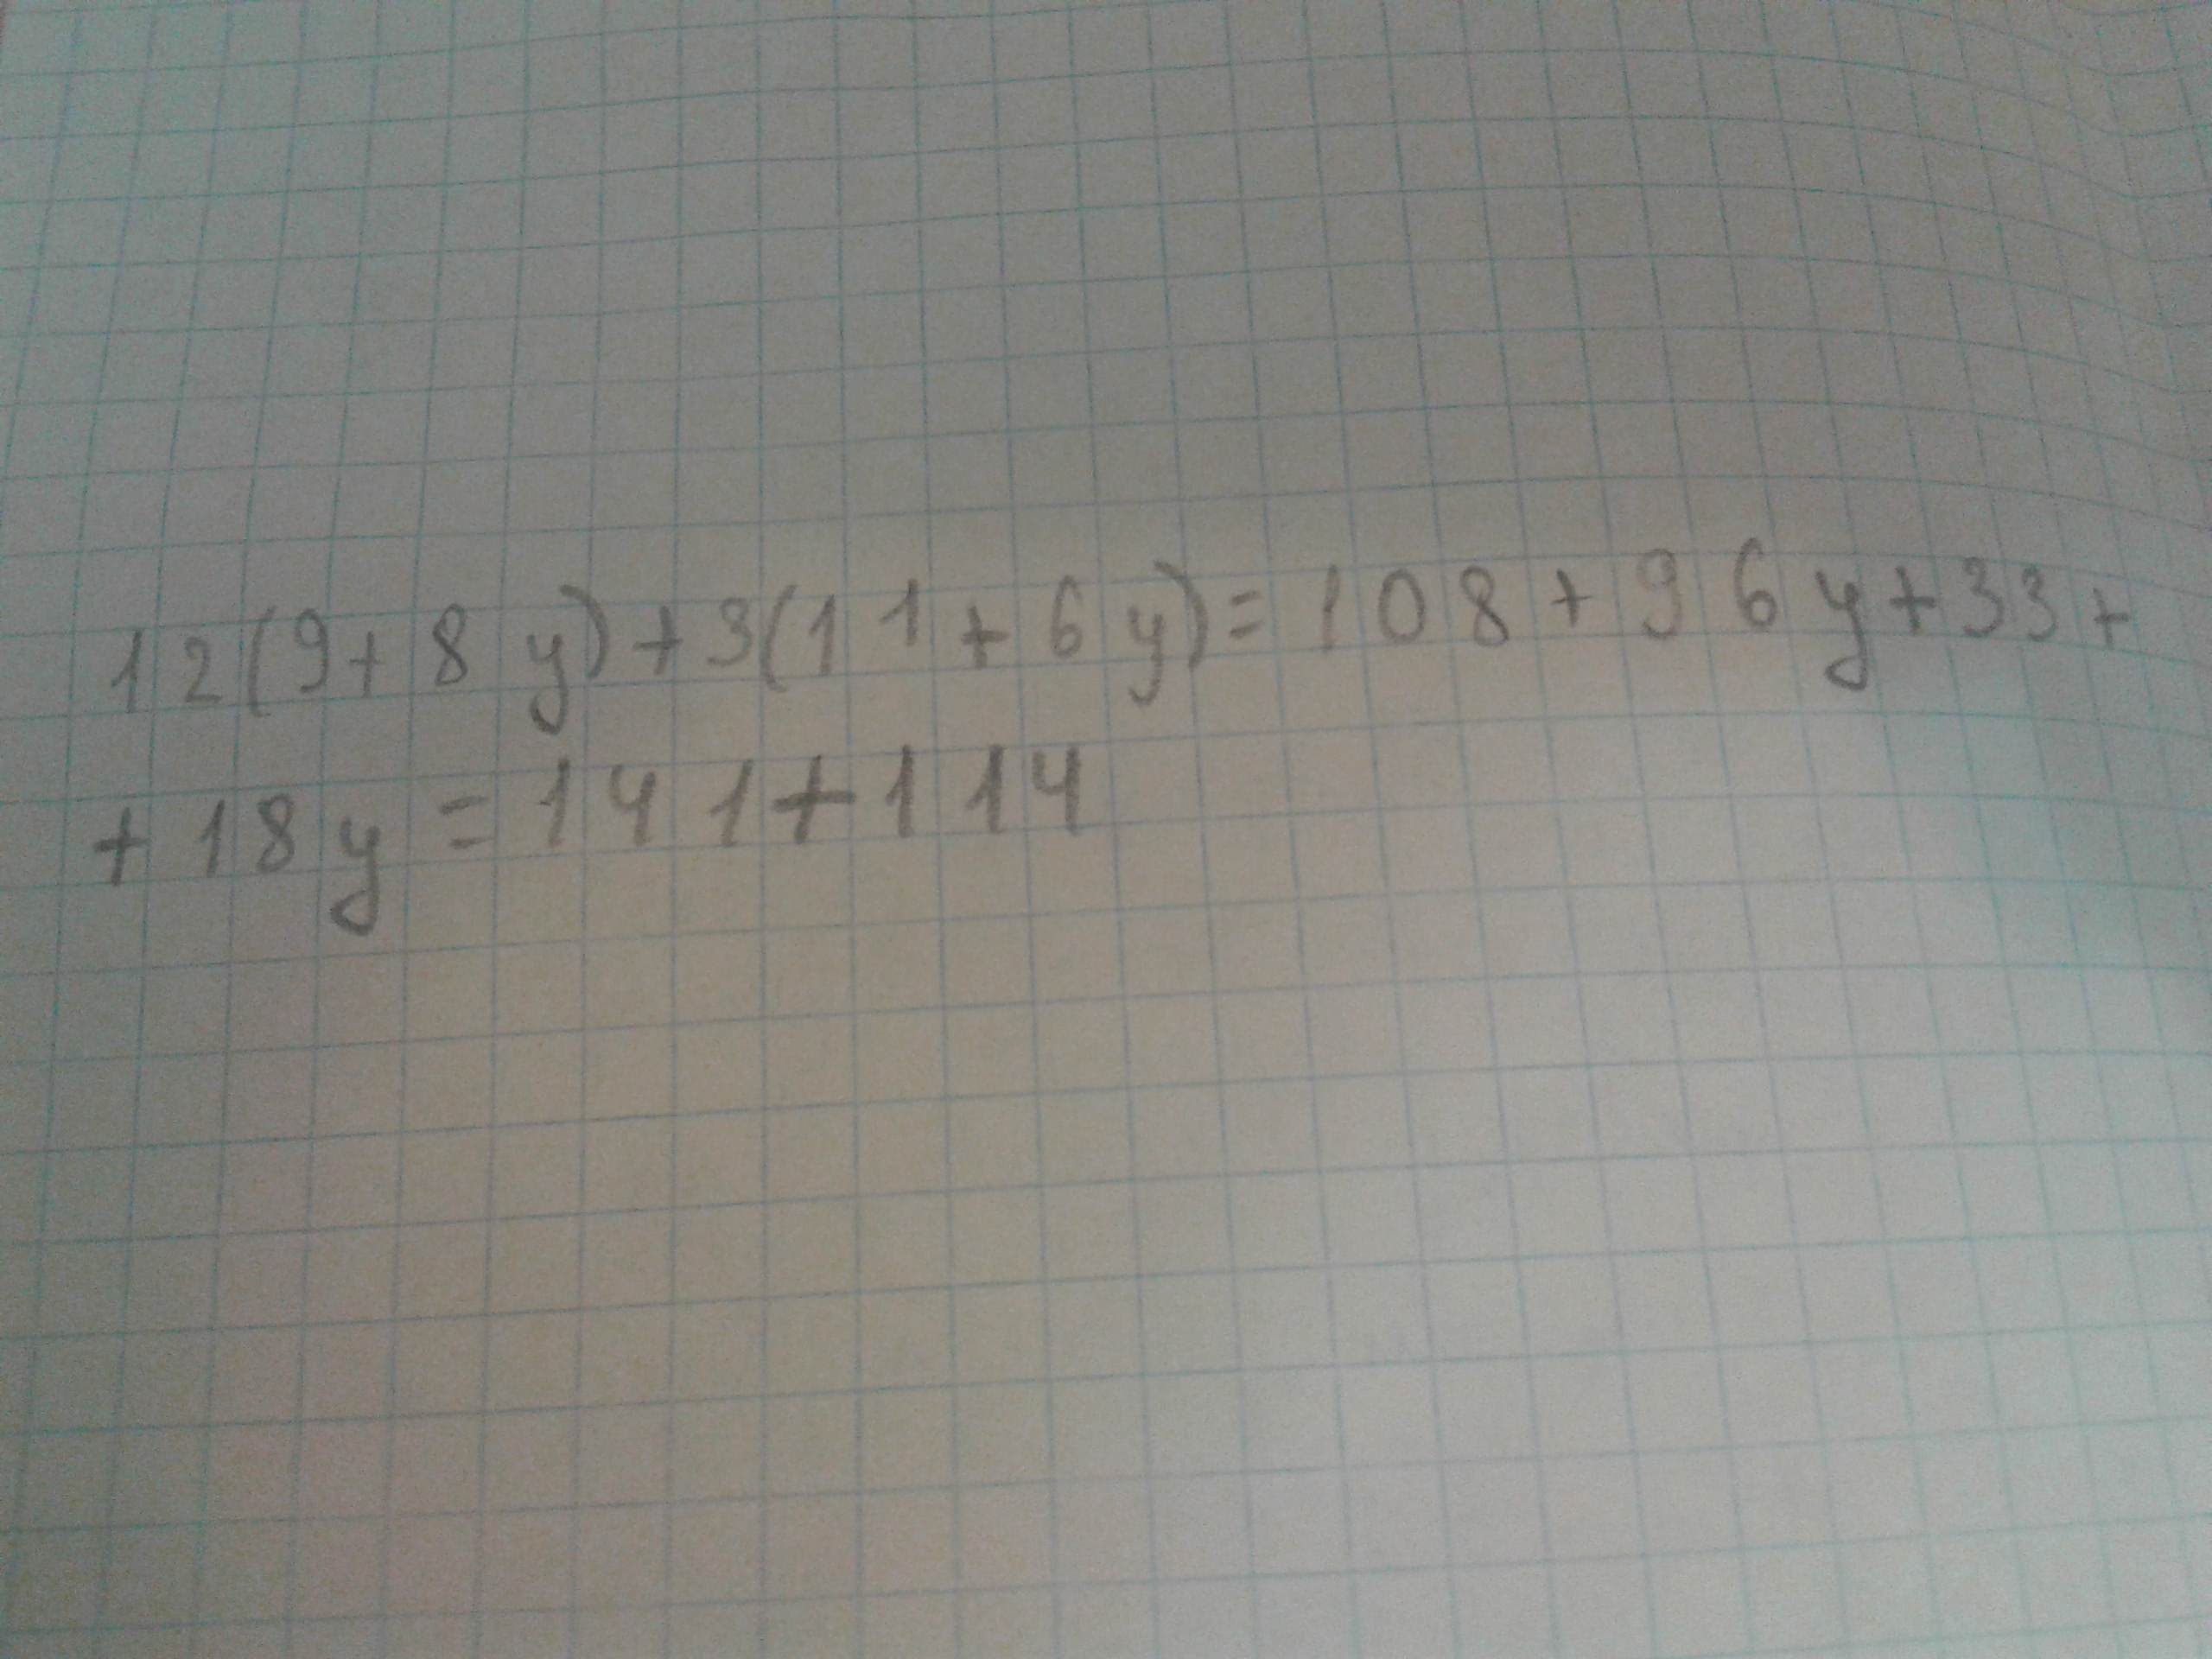 12(9+8y)+3(11+6y)=108+96y+33+
+18y=141+114